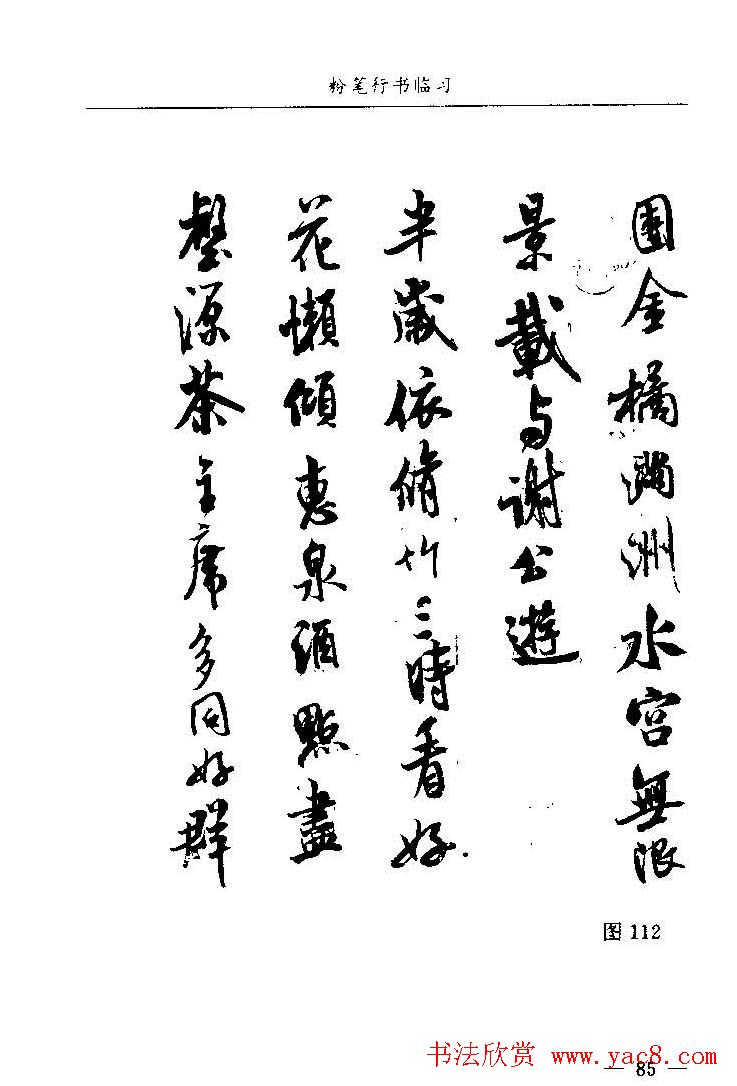 粉笔行书临习
團金橘滿洲水宮無限
景載与謝公遊
半歲依脩竹三時看好
花懶傾惠泉酒點盡
壑源茶主席多同好群
图 112
书法欣赏 www.yac8.com
— 85 —